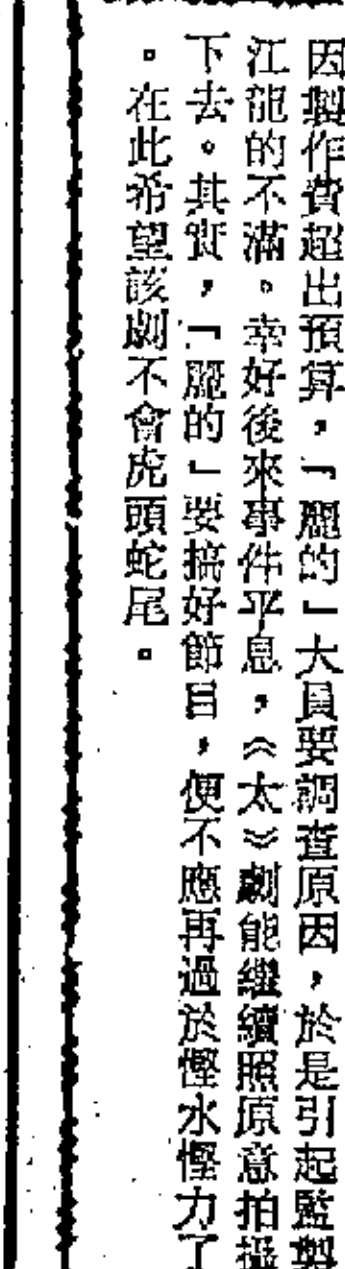 因製作費超出預算，「麗的」大員要調查原因，於是引起監製
江龍的不滿。幸好後來事件平息，《太》劇能繼續照原意拍攝
下去。其實，「麗的」要搞好節目，便不應再過於慳水慳力了
。在此希望該劇不會虎頭蛇尾。